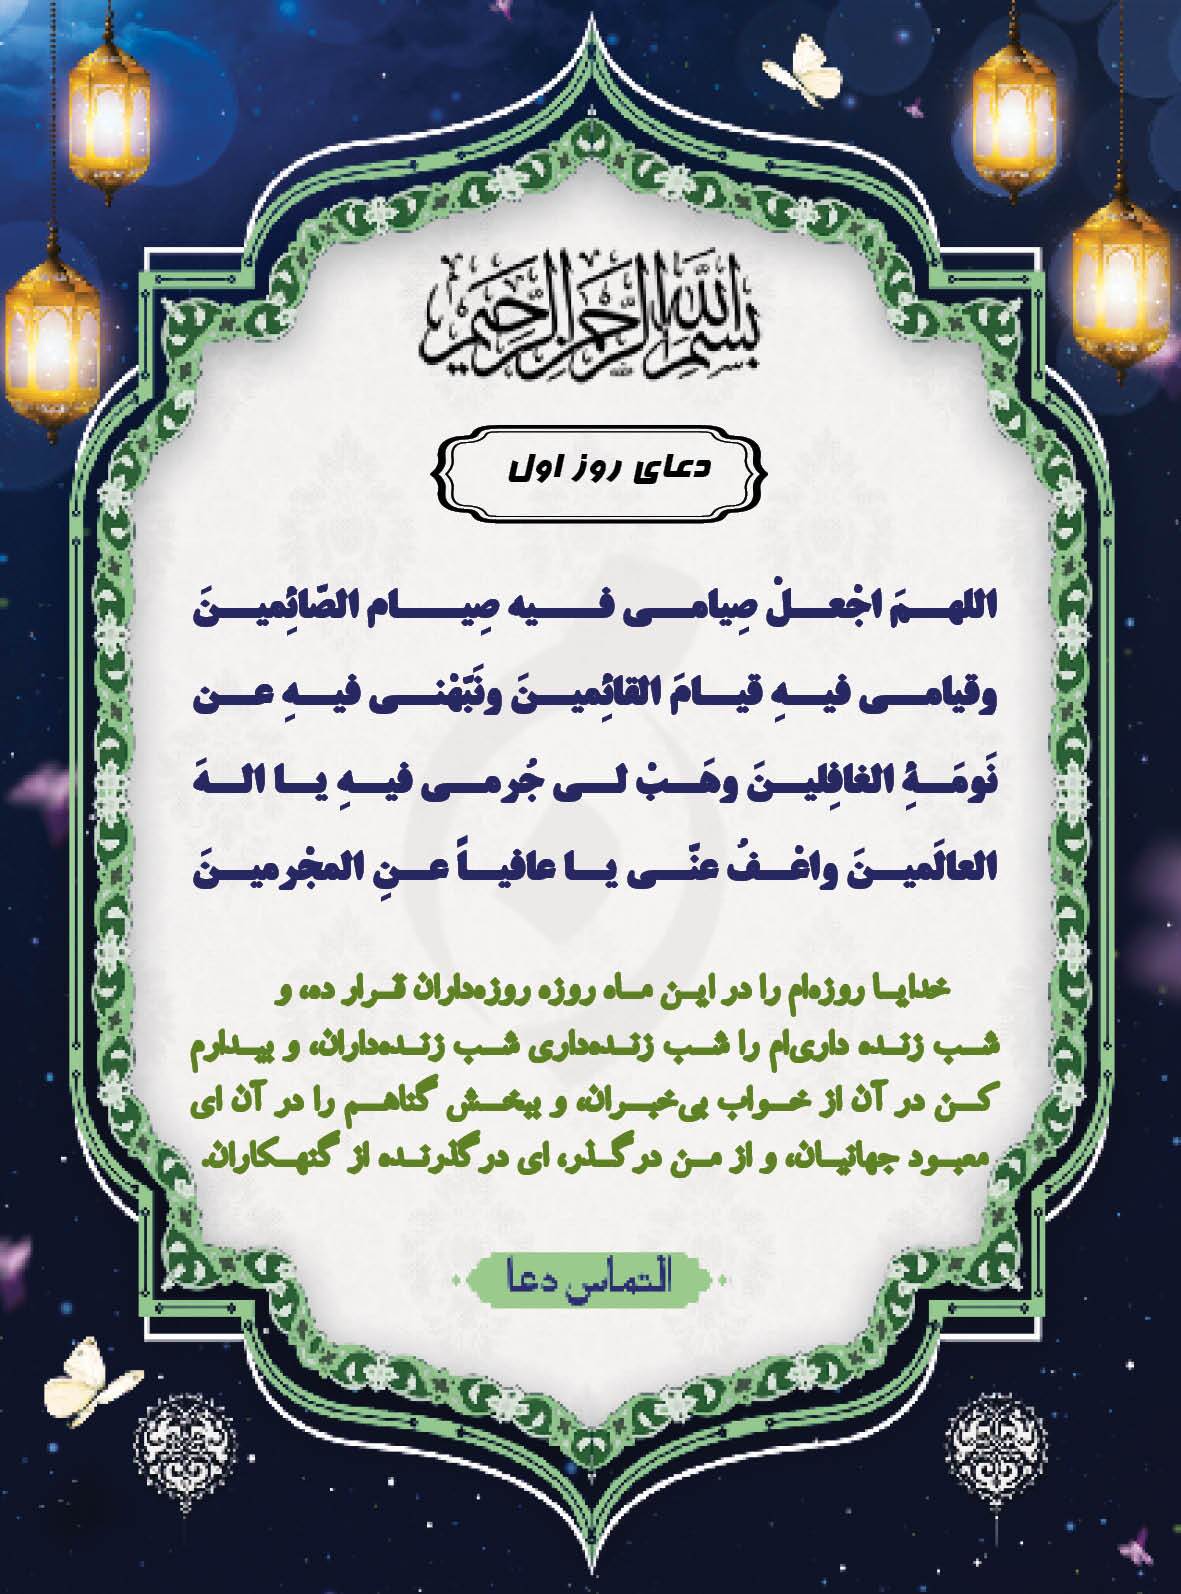 بسم الله الرحمن الرحیم
دعای روز اول
اللهمَ اجْعلْ صِیامی فیه صِیام الصّائِمینَ
وقیامی فیهِ قیامَ القائِمینَ ونَبّهْنی فیهِ عن
نَومَةِ الغافِلینَ وهَبْ لی جُرمی فیهِ یا الهَ
العالَمینَ واعْفُ عنّی یا عافیاً عنِ المجْرمینَ
خدایا روزه‌ام را در این ماه روزه روزه‌داران قرار ده، و
شب زنده داری‌ام را شب زنده‌داری شب زنده‌داران، و بیدارم
کن در آن از خواب بی‌خبران، و ببخش گناهم را در آن ای
معبود جهانیان، و از من درگذر، ای درگذرنده از گنهکاران.
التماس دعا